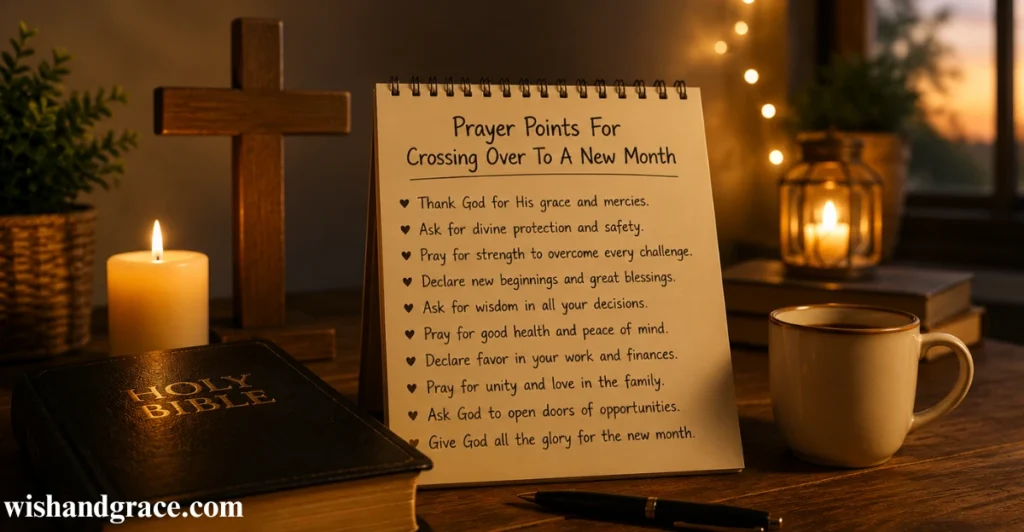 Prayer Points For
Crossing Over To A New Month
♥ Thank God for His grace and mercies.
♥ Ask for divine protection and safety.
♥ Pray for strength to overcome every challenge.
♥ Declare new beginnings and great blessings.
♥ Ask for wisdom in all your decisions.
♥ Pray for good health and peace of mind.
♥ Declare favor in your work and finances.
♥ Pray for unity and love in the family.
♥ Ask God to open doors of opportunities.
♥ Give God all the glory for the new month.
HOLY
BIBLE
wishandgrace.com